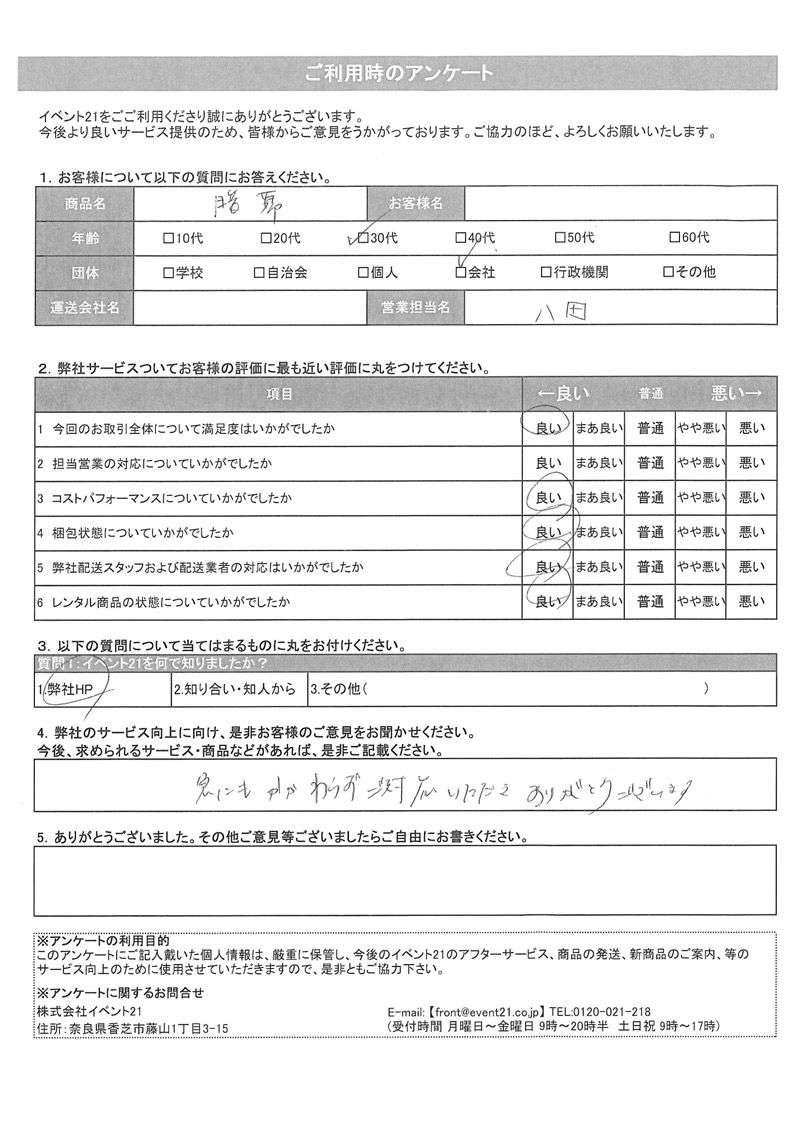 ご利用時のアンケート
イベント21をご利用くださり誠にありがとうございます。
今後より良いサービス提供のため、皆様からご意見をうかがっております。ご協力のほど、よろしくお願いいたします。
1. お客様について以下の質問にお答えください。
商品名 お客様名
年齢 □10代 □20代 □30代 □40代 □50代 □60代
団体 □学校 □自治会 □個人 □会社 □行政機関 □その他
運送会社名 営業担当名 八田
2. 弊社サービスついてお客様の評価に最も近い評価に丸をつけてください。
項目 ←良い 普通 悪い→
1 今回のお取引全体について満足度はいかがでしたか 良い まあ良い 普通 やや悪い 悪い
2 担当営業の対応についていかがでしたか 良い まあ良い 普通 やや悪い 悪い
3 コストパフォーマンスについていかがでしたか 良い まあ良い 普通 やや悪い 悪い
4 梱包状態についていかがでしたか 良い まあ良い 普通 やや悪い 悪い
5 弊社配送スタッフおよび配送業者の対応はいかがでしたか 良い まあ良い 普通 やや悪い 悪い
6 レンタル商品の状態についていかがでしたか 良い まあ良い 普通 やや悪い 悪い
3. 以下の質問について当てはまるものに丸をお付けください。
質問1:イベント21を何で知りましたか?
1.弊社HP 2.知り合い・知人から 3.その他( )
4. 弊社のサービス向上に向け、是非お客様のご意見をお聞かせください。
今後、求められるサービス・商品などがあれば、是非ご記載ください。
急にもかかわらずご対応いただき ありがとうございます
5. ありがとうございました。その他ご意見等ございましたらご自由にお書きください。
※アンケートの利用目的
このアンケートにご記入戴いた個人情報は、厳重に保管し、今後のイベント21のアフターサービス、商品の発送、新商品のご案内、等の
サービス向上のために使用させていただきますので、是非ともご協力下さい。
※アンケートに関するお問合せ
株式会社イベント21 E-mail:【front@event21.co.jp】 TEL:0120-021-218
住所:奈良県香芝市藤山1丁目3-15 (受付時間 月曜日～金曜日 9時～20時半 土日祝 9時～17時)